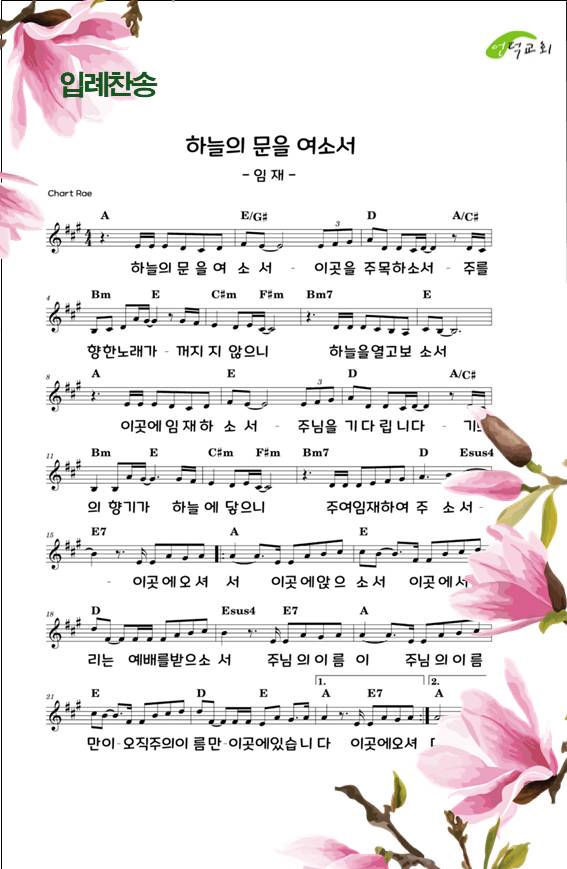 언덕교회
입례찬송
하늘의 문을 여소서
- 임 재 -
Chart Rae
A E/G♯ D A/C♯
3
하늘의 문 을 여 소 서 - 이곳을 주목하소서 - 주를
4 Bm E C♯m F♯m Bm7 E
향한노래가 - 꺼지 지 않으니 하늘을열고보 소서
8 A E D A/C♯
3
이곳에 임 재 하 소 서 - 주님을 기 다 립 니 다 -
11 Bm E C♯m F♯m Bm7 D Esus4
의 향기가 하늘 에 닿으니 주여임재하여 주 소 서 -
15 E7 A E
- 이곳에오 셔 서 이곳에앉으 소 서 이곳에서
18 D Esus4 E7 A
리는 예배를받으소 서 주님 의 이 름 이 주님 의 이 름
1. 2.
21 E D E A E7 A
만이-오직주의이 름만-이곳에있습니 다 이곳에오셔